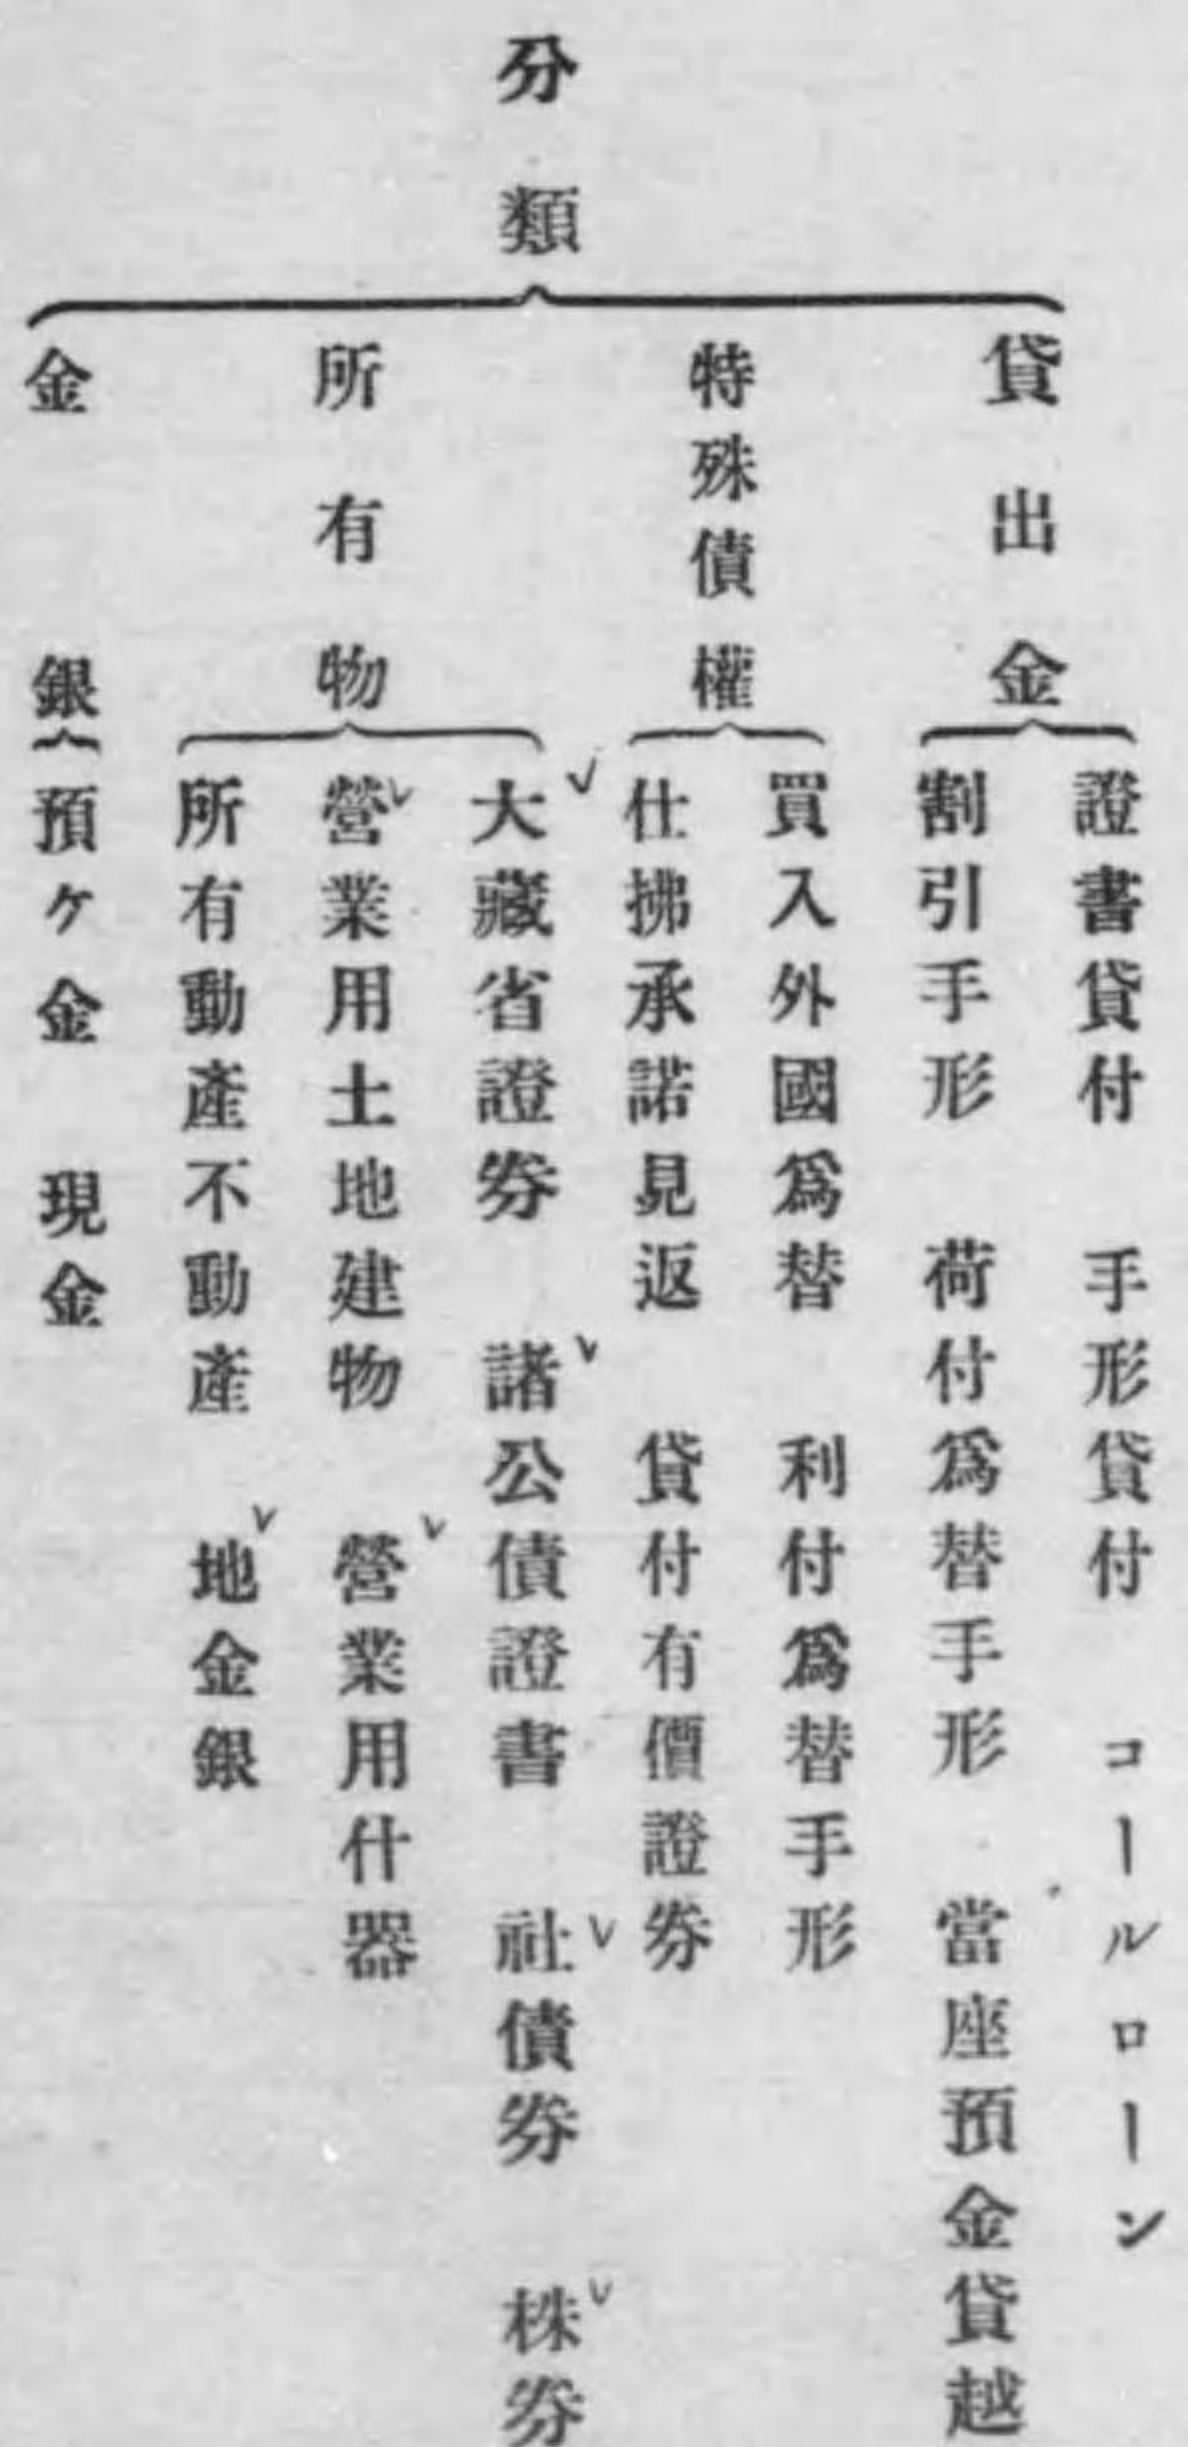 分類
貸出金
證書貸付 手形貸付 コールローン
割引手形 荷付爲替手形 當座預金貸越
特殊債權
買入外國爲替 利付爲替手形
仕拂承諾見返 貸付有價證券
所有物
大藏省證券 諸公債證書 社債券 株券
營業用土地建物 營業用什器
所有動產不動產 地金銀
金銀
預ケ金 現金